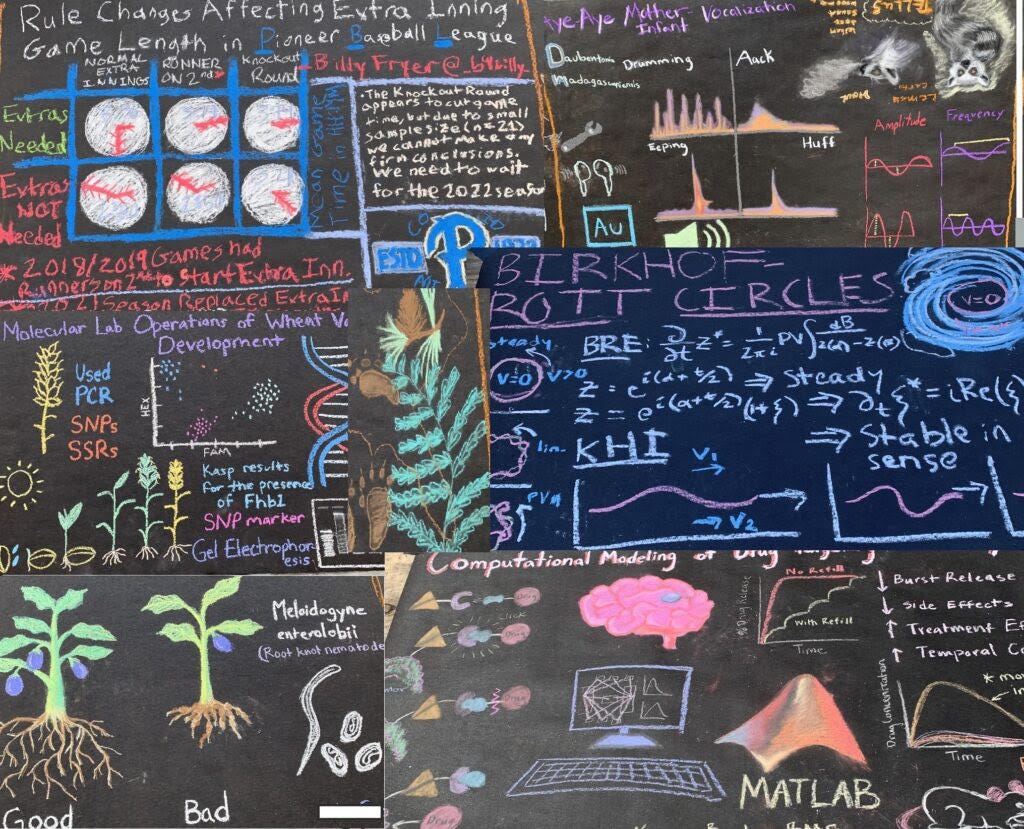 Rule Changes Affecting Extra Inning
Game Length in Pioneer Baseball League
NORMAL EXTRA INNINGS
RUNNER ON 2nd*
Knockout Round
Extras Needed
Extras NOT Needed
Mean Game Time in HH:MM
Billy Fryer@_b4billy_
.The Knockout Round
appears to cut game
time, but due to small
sample size (n=21)
we cannot make any
firm conclusions.
We need to wait
for the 2022 season
ESTD
P
* 2018/2019 Games had
Runners on 2nd to start Extra Inn.
21 Season Replaced Extra In
Aye Mother-Infant Vocalization
Daubentonia
Madagascariensis
Drumming
Aack
Eeping
Huff
Au
Amplitude
Frequency
Molecular Lab Operations of Wheat
Development
Used
PCR
SNPs
SSRs
HEX
FAM
Kasp results
for the presence
of Fhb1
SNP marker
Gel Electrophor-
esis
BIRKHOF-
ROTT CIRCLES
V=0
steady
V=0
V>0
BRE: ∂/∂t z* = 1/2πi PV∫ dB/z(α)-z(β)
z = e^i(α+t/2) ⇒ steady
z = e^i(α+t/2)(1+ξ) ⇒ ∂tξ* = iRe{ξ
⇒ Stable in
sense
lin.
KHI
PVM
V1
V2
Good
Bad
Meloidogyne
enterolobii
(Root knot nematode
Computational Modeling of Drug
Drug
Drug
Drug
Drug
% Drug Release
No Refill
With Refill
Time
↓ Burst Release
↓ Side Effects
↑ Treatment
↑ Temporal
Drug Concentration
Time
MATLAB